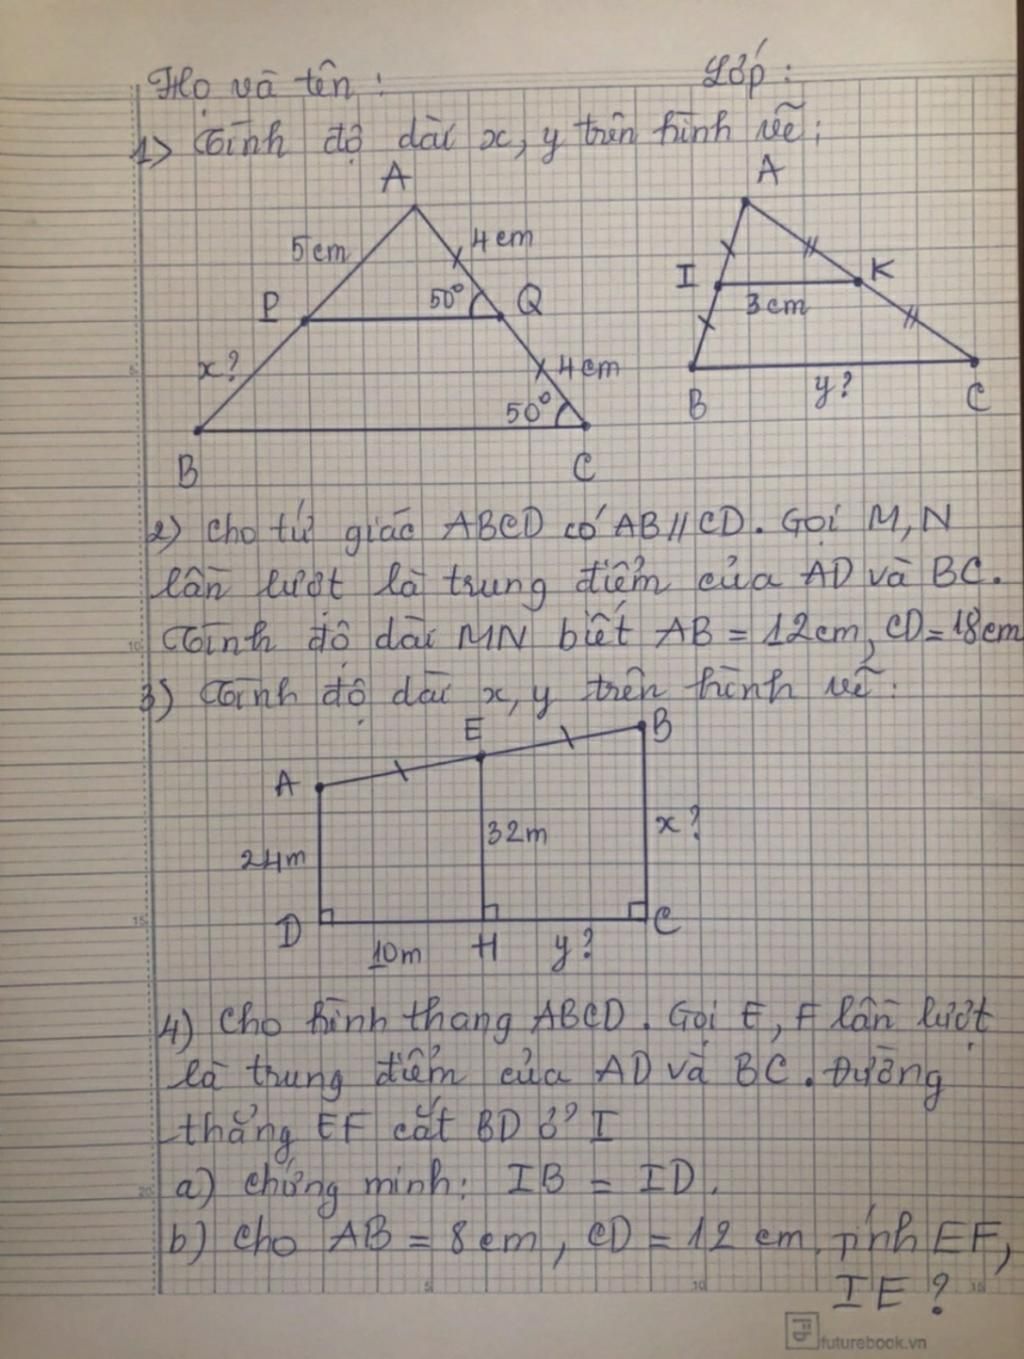 Họ và tên : Lớp :
1) Tính độ dài x, y trên hình vẽ:
A
5cm
4cm
P
50°
Q
x?
4cm
50°
B
C
A
I
K
3cm
B
y?
C
2) Cho tứ giác ABCD có AB//CD. Gọi M, N
lần lượt là trung điểm của AD và BC.
Tính độ dài MN biết AB = 12cm, CD = 18cm
3) Tính độ dài x, y trên hình vẽ:
E
B
A
32m
x?
24m
D
C
10m
H
y?
4) Cho hình thang ABCD. Gọi E, F lần lượt
là trung điểm của AD và BC. Đường
thẳng EF cắt BD ở I
a) Chứng minh: IB = ID.
b) Cho AB = 8cm, CD = 12 cm, tính EF,
IE ?
5
10
15
20
5
10
15
futurebook.vn